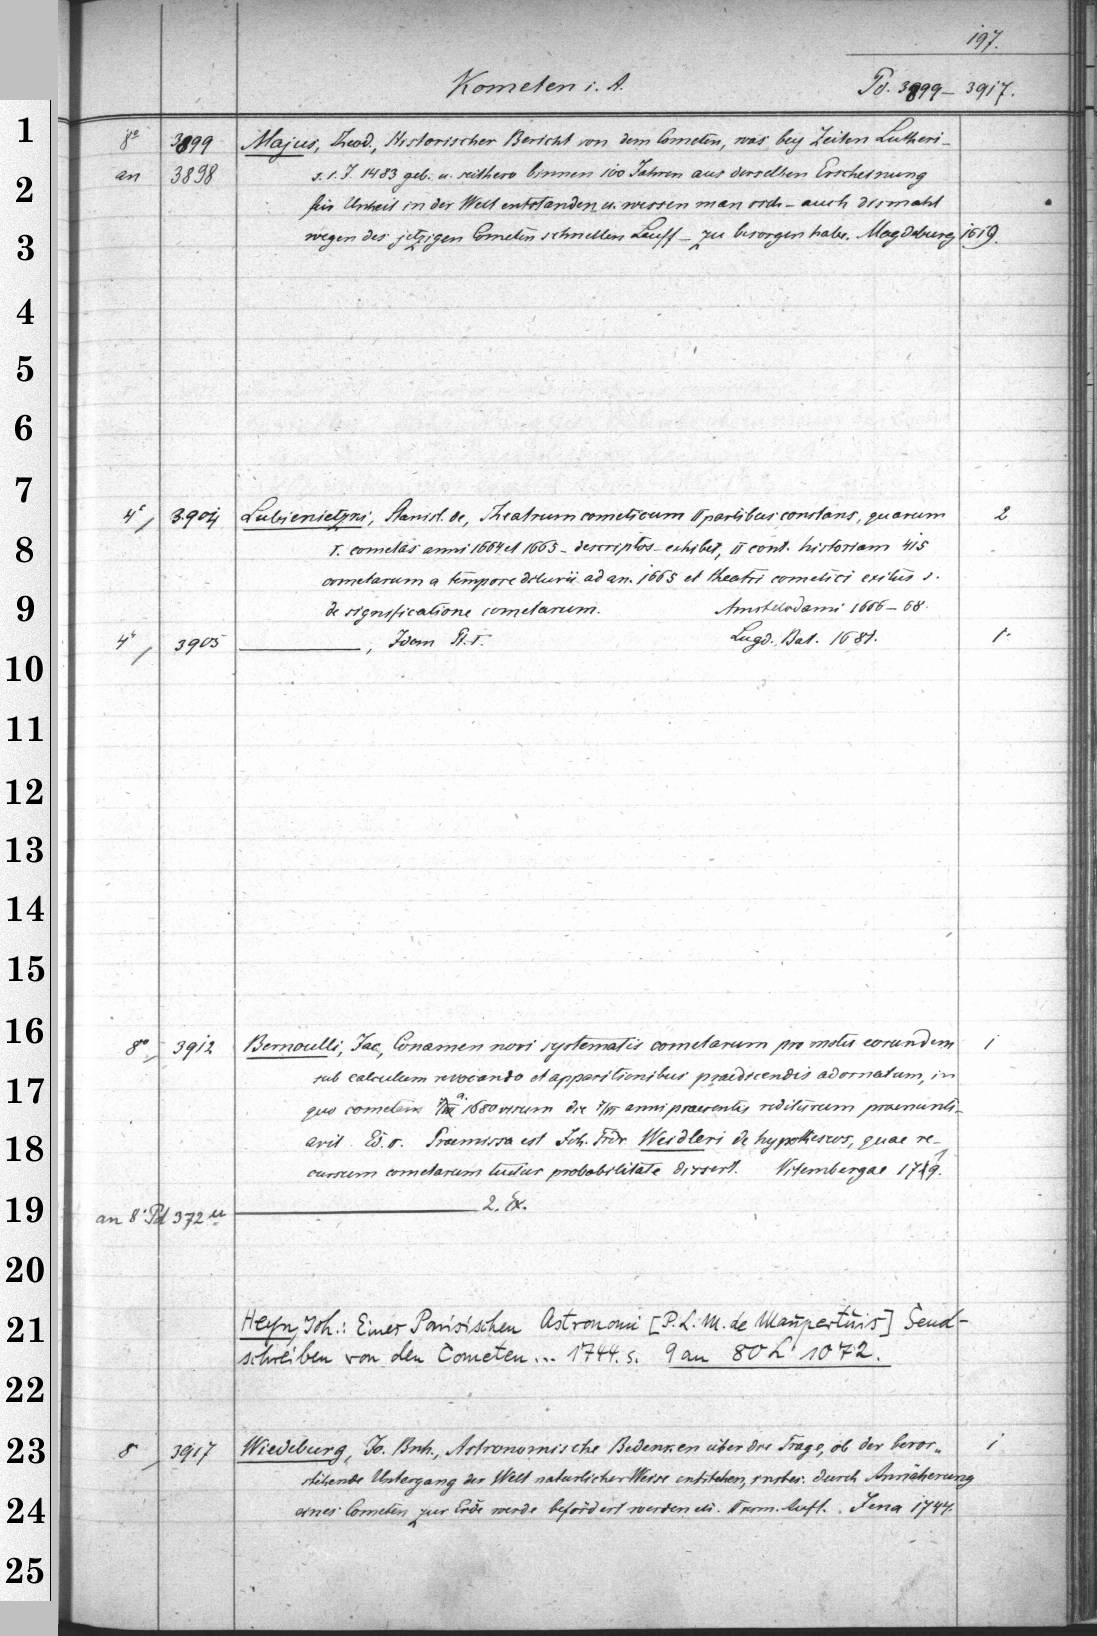 197.
Kometen i. A.
Pd. 3899 – 3917.
8° 3899 Majus, Theod., Historischer Bericht von dem Cometen, was bey Zeiten Lutheri
an 3898 s. i. J. 1483 geb. u. seithero binnen 100 Jahren aus derselben Erscheinung
für Unheil in der Welt entstanden u. wessen man sich – auch dismahl
wegen des jetzigen Cometen schnellen Lauff – zu besorgen habe. Magdeburg 1619.
4° 3904 Lubienietzki, Stanisl. de, Theatrum cometicum II partibus constans, quarum 2
I. cometas anni 1664 et 1665 – descriptos – exhibet, II cont. historiam 415
cometarum a tempore diluvii ad an. 1665 et theatri cometici exitus s.
de significatione cometarum. Amstelodami 1666 – 68.
4° 3905 , Idem Pt. I. Lugd. Bat. 1681. 1.
8° 3912 Bernoulli, Jac., Conamen novi systematis cometarum pro motu eorundem 1
sub calculum revocando et apparitionibus praedicendis adornatum, in
quo cometem 1680 visum die anni praesentis rediturum praenunti-
avit. Ed. Praemissa est Joh. Frdr. Weidleri de hypotheseos, quae re-
cursum cometarum tuetur probabilitate dissert. Vitembergae 1719.
an 8° Pd 372 u 2. Ex.
Heyn, Joh.: Eines Parisischen Astronomi [P. L. M. de Maupertuis] Send-
schreiben von den Cometen ... 1744. s. 9 an 80 h 1072.
8 3917 Wiedeburg, Jo. Bnh., Astronomische Bedenken über die Frage, ob der bevor- 1
stehende Untergang der Welt natürlicher Weise entstehen, insbes. durch Annäherung
eines Cometen zur Erde werde befördert werden etc. II verm. Aufl. Jena 1744.
1
2
3
4
5
6
7
8
9
10
11
12
13
14
15
16
17
18
19
20
21
22
23
24
25